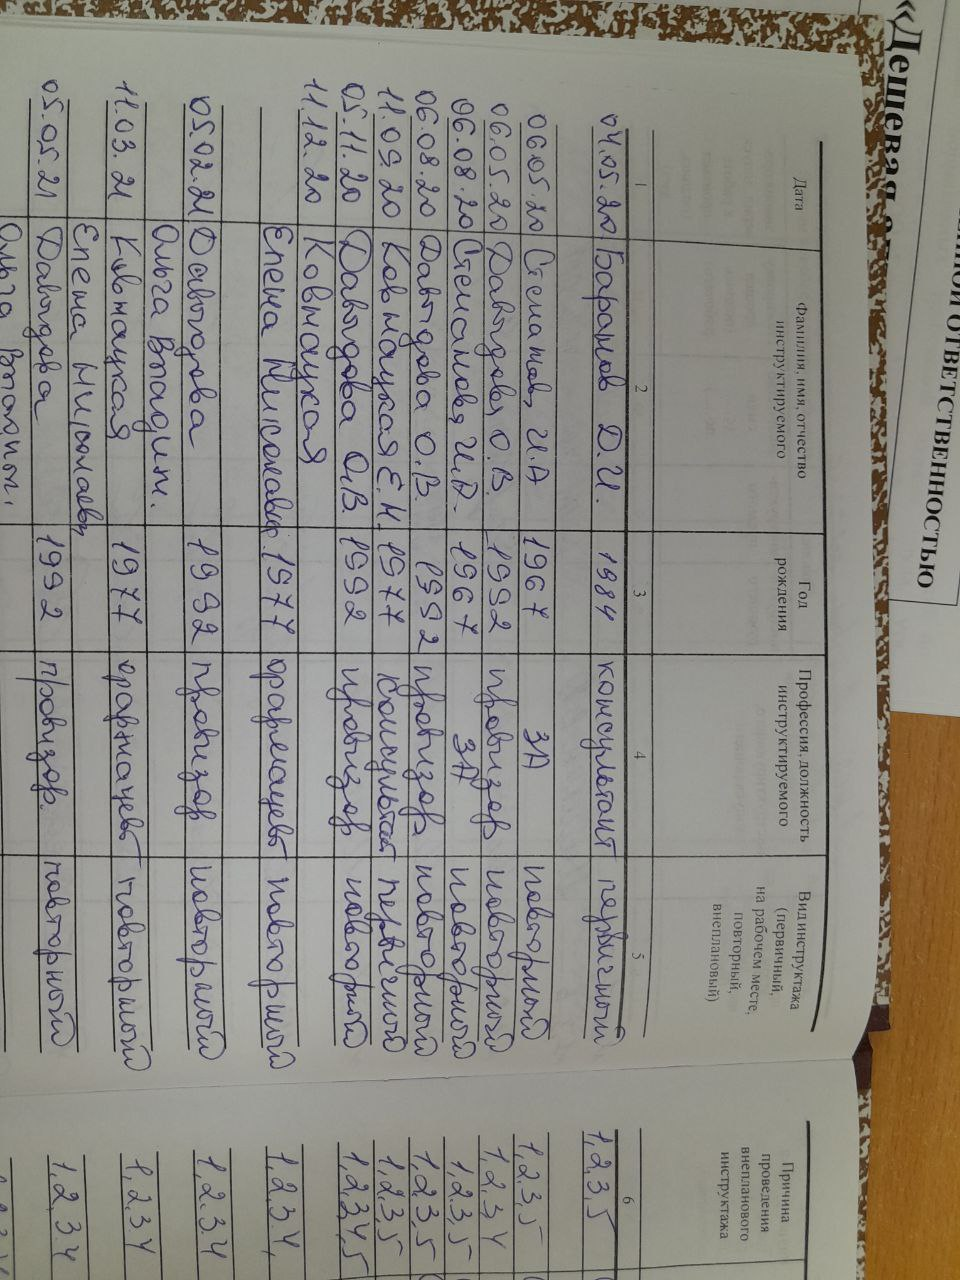 «Дешевая
ЕННОЙ ОТВЕТСТВЕННОСТЬЮ
Дата
Фамилия, имя, отчество
инструктируемого
Год
рождения
Профессия, должность
инструктируемого
Вид инструктажа
(первичный,
на рабочем месте,
повторный,
внеплановый)
Причина
проведения
внепланового
инструктажа
1 2 3 4 5 6
04.05.20 Баранов Д.И. 1984 консультант первичный 1,2,3,5
06.05.20 Степанова И.А 1967 ЗА повторный 1,2,3,5
06.05.20 Давыдова О.В. 1992 провизор повторный 1,2,3,4
06.08.20 Степанова И.А. 1967 ЗА повторный 1.2.3,5
06.08.20 Давыдова О.В. 1992 провизор повторный 1,2,3,5
11.09.20 Е.Н. 1977 консультант первичный 1,2,3,5
05.11.20 Давыдова О.В. 1992 провизор повторный 1,2,3,4,5
11.12.20
Елена 1977 фармацевт повторный 1,2,3.4,
05.02.21 Давыдова 1992 провизор повторный 1,2.3.4
Ольга Владим.
11.03.21 1977 фармацевт повторный 1,2.3.4
Елена
05.05.21 Давыдова 1992 провизор. повторный 1,2,3.4
Ольга